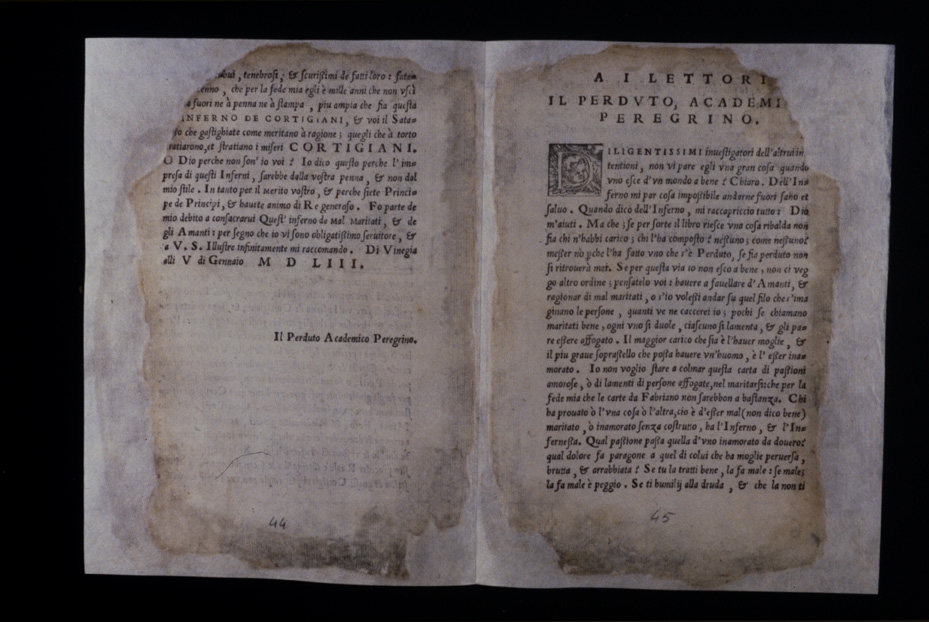 tenebrosi, & scurissimi de fatti loro: saten
che per la fede mia egli è mille anni che non uscì
fuori ne à penna ne à stampa, piu ampia che sia questa
INFERNO DE CORTIGIANI, & voi il Sata=
so che gastighiate come meritano à ragione; quegli che à torto
et stratiano i miseri CORTIGIANI.
O Dio perche non son' io voi? Io dico questo perche l'im=
presa di questi Inferni, sarebbe dalla vostra penna, & non dal
mio stile. In tanto per il merito vostro, & perche siete Princi=
pe de Principi, & hauete animo di Re generoso. Fo parte de
mio debito a consacrarui Quest' inferno de Mal Maritati, & de
gli Amanti: per segno che io vi sono obligatissimo seruitore, &
a V. S. Illustre infinitamente mi raccomando. Di Vinegia
alli V di Gennaio M D LIII.
Il Perduto Academico Peregrino.
44
A I LETTORI
IL PERDVTO, ACADEMI
PEREGRINO.
DILIGENTISSIMI inuestigatori dell'altrui in
tentioni, non vi pare egli vna gran cosa quando
vno esce d'vn mondo a bene? Chiaro. Dell'In=
ferno mi par cosa impossibile andarne fuori sano et
saluo. Quando dico dell'Inferno, mi raccapriccio tutto: Dio
m'aiuti. Ma che; se per sorte il libro riesce vna cosa ribalda non
fia chi n'habbi carico; chi l'ha composto? nessuno; come nessuno?
messer nò pche l'ha fatto vno che s'è Perduto, se sia perduto non
si ritrouerà mai. Se per questa via io non esco a bene, non ci veg
go altro ordine; pensatelo voi: hauere a fauellare d'Amanti, &
ragionar di mal maritati, o s'io volessi andar su quel filo che s'ima
ginano le persone, quanti ve ne caccerei io; pochi se chiamano
maritati bene, ogni vno si duole, ciascuno si lamenta, & gli pa=
re essere affogato. Il maggior carico che sia è l'hauer moglie, &
il piu graue soprastello che possa hauere vn'huomo, è l' esser ina=
morato. Io non voglio stare a colmar questa carta di passioni
amorose, ò di lamenti di persone affogate, nel maritarsi; che per la
fede mia che le carte da Fabriano non sarebbon a bastanza. Chi
ha prouato ò l'vna cosa ò l'altra, cio è d'esser mal (non dico bene)
maritato, ò inamorato senza costrutto, ha l'Inferno, & l'In=
fernessa. Qual passione passa quella d'vno inamorato da douero?
qual dolore fa paragone a quel di colui che ha moglie peruersa,
brutta, & arrabbiata? Se tu la tratti bene, la fa male: se male;
la fa male è peggio. Se ti humilij alla druda, & che la non ti
45